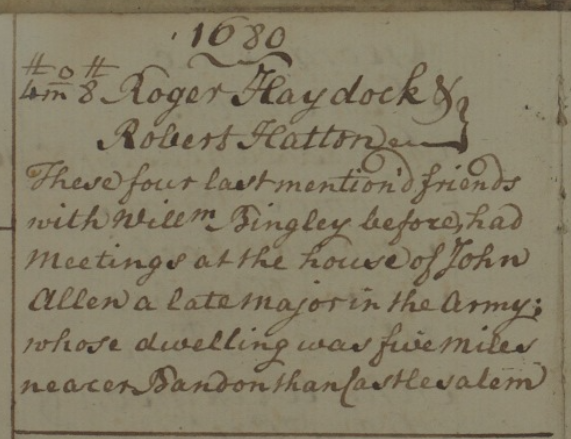 1680
4 mo 8 Roger Haydock &
Robert Hatton
These four last mention'd friends
with Willm Bingley before, had
meetings at the house of John
Allen a late major in the Army;
whose dwelling was five miles
neacer Bandon than Castlesalem